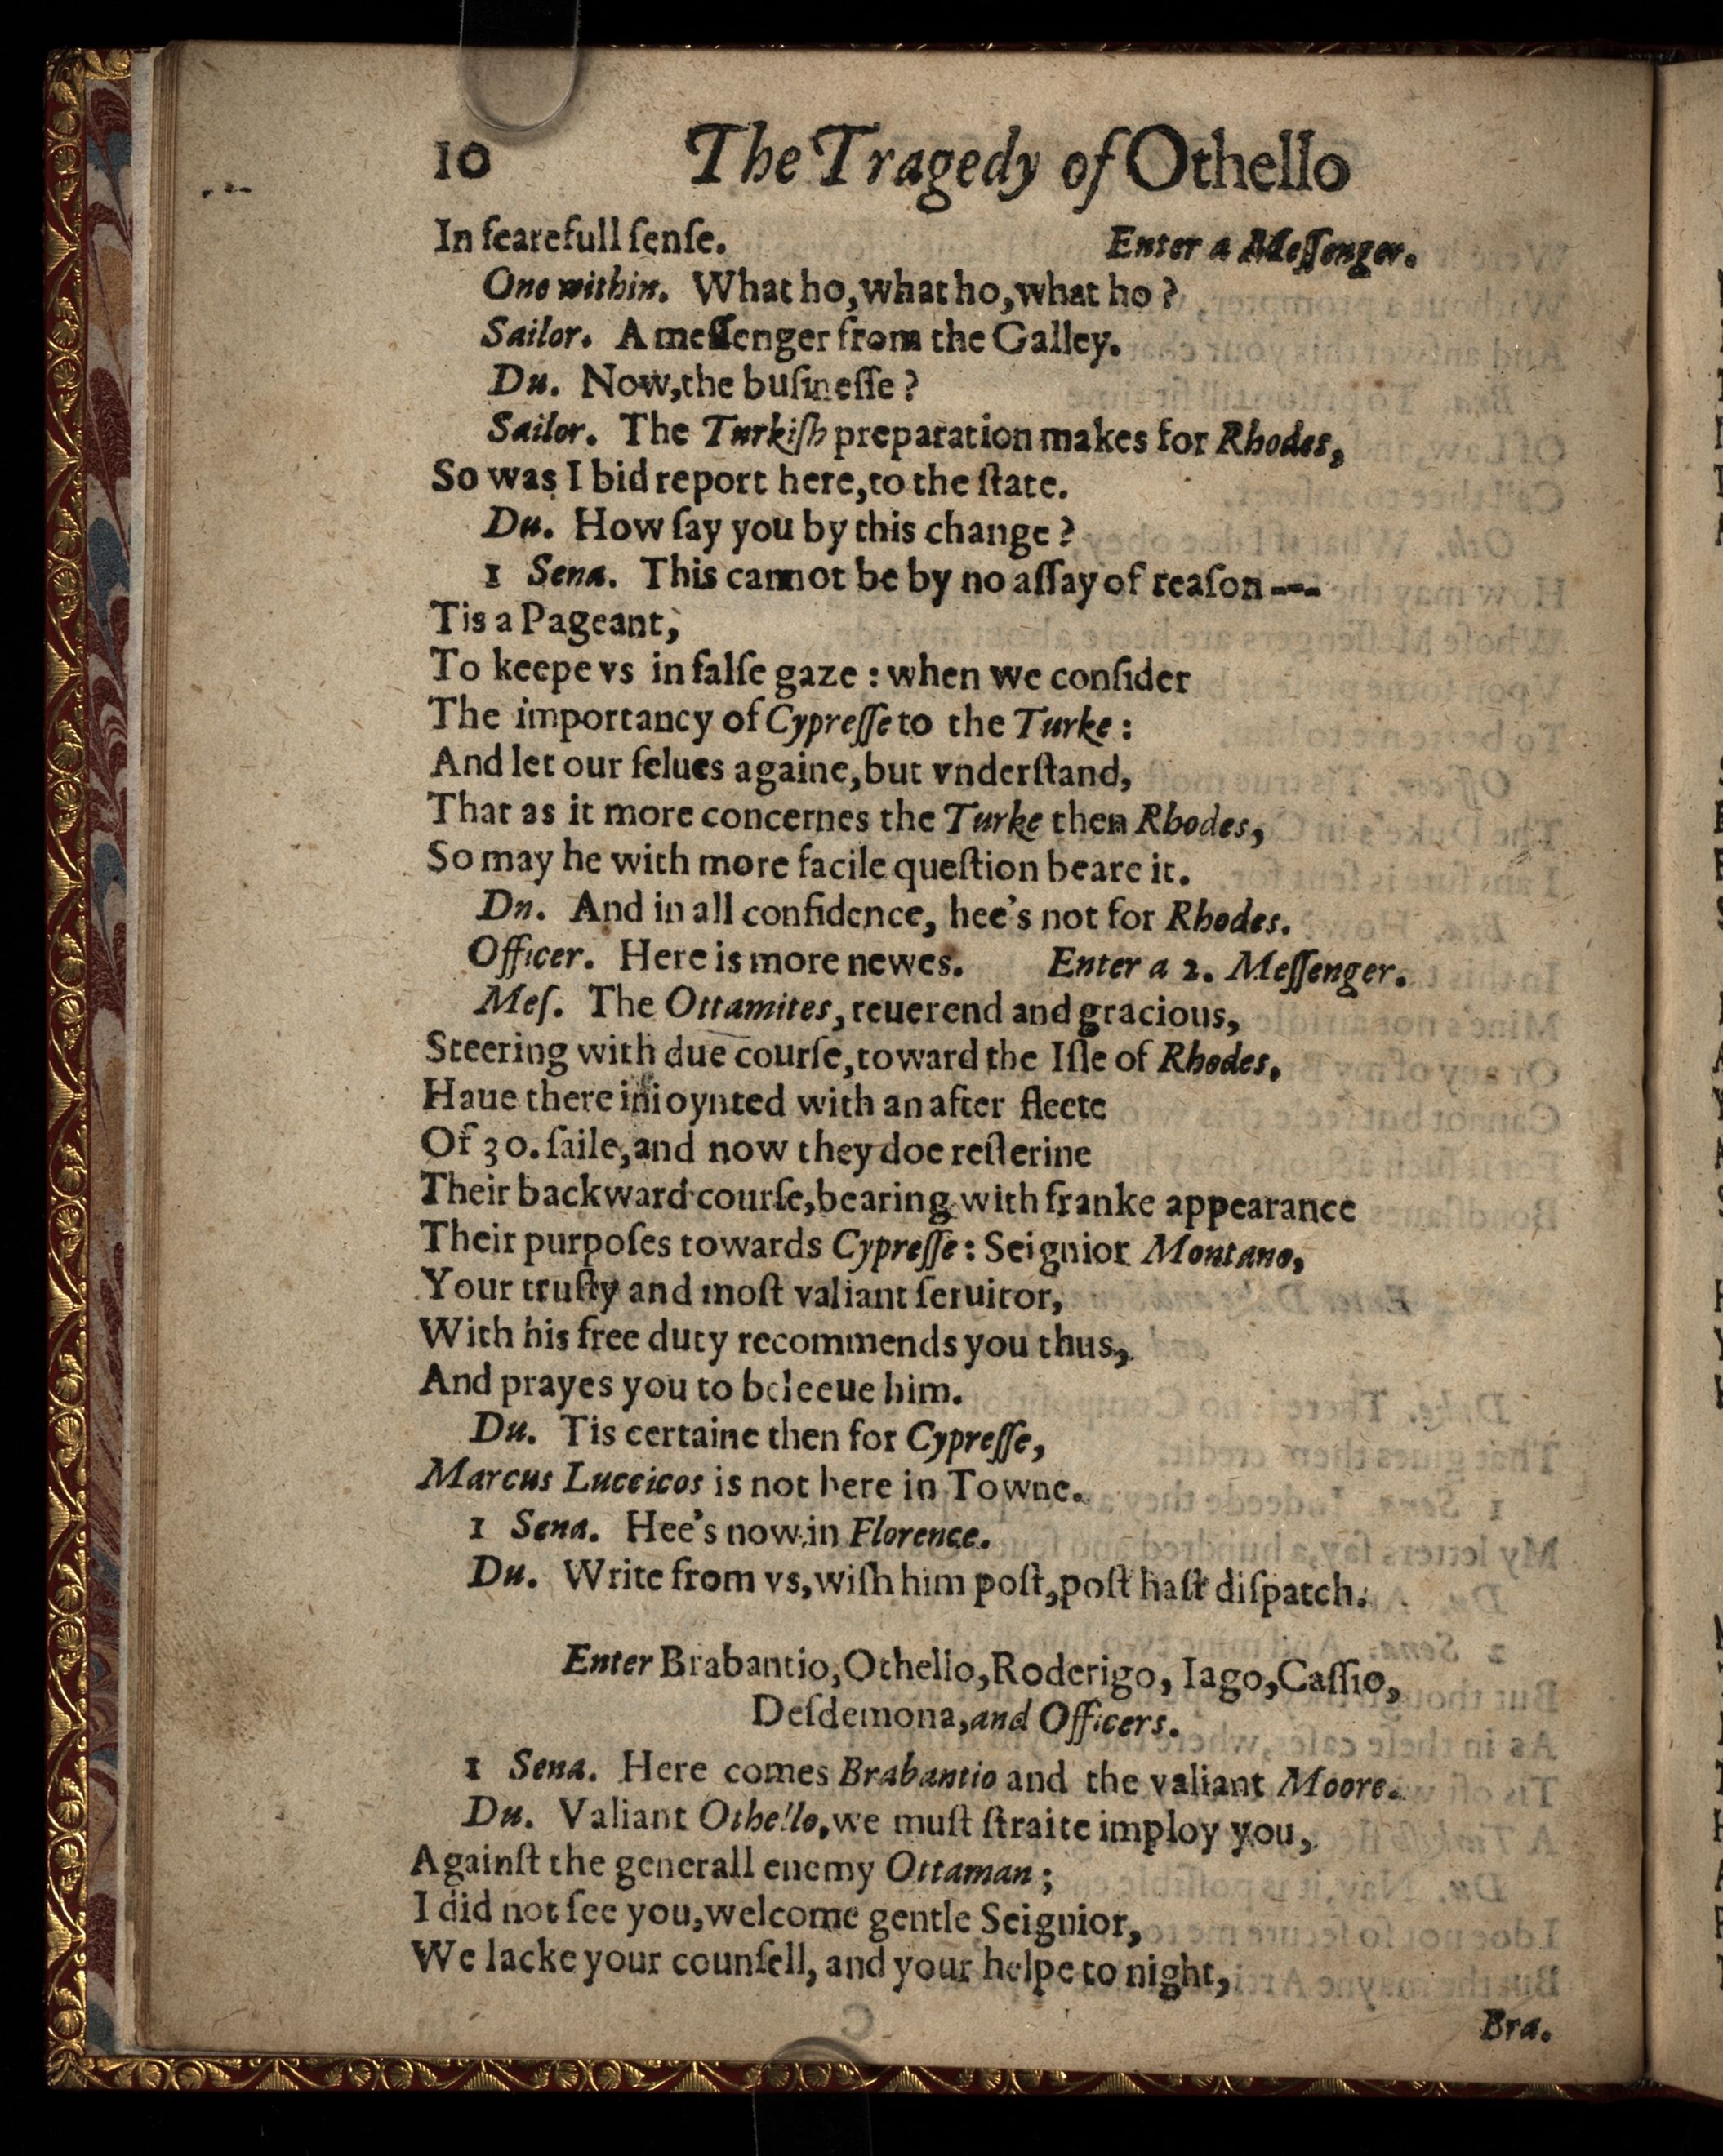 10 The Tragedy of Othello
In fearefull ſenſe. Enter a Meſſenger.
One within. What ho, what ho, what ho?
Sailor. A meſſenger from the Galley.
Du. Now, the buſineſſe?
Sailor. The Turkiſh preparation makes for Rhodes,
So was I bid report here, to the ſtate.
Du. How ſay you by this change?
1 Sena. This cannot be by no aſſay of reaſon ---
Tis a Pageant,
To keepe vs in falſe gaze: when we conſider
The importancy of Cypreſſe to the Turke:
And let our ſelues againe, but vnderſtand,
That as it more concernes the Turke then Rhodes,
So may he with more facile queſtion beare it.
Dn. And in all confidence, hee's not for Rhodes.
Officer. Here is more newes. Enter a 2. Meſſenger.
Meſ. The Ottamites, reuerend and gracious,
Steering with due courſe, toward the Iſle of Rhodes,
Haue there inioynted with an after fleete
Of 30. ſaile, and now they doe reſterine
Their backward courſe, bearing with franke appearance
Their purpoſes towards Cypreſſe: Seignior Montano,
Your truſty and moſt valiant ſeruitor,
With his free duty recommends you thus,
And prayes you to beleeue him.
Du. Tis certaine then for Cypreſſe,
Marcus Lucciccos is not here in Towne.
1 Sena. Hee's now in Florence.
Du. Write from vs, wiſh him poſt, poſt haſt diſpatch.
Enter Brabantio, Othello, Roderigo, Iago, Caſſio,
Deſdemona, and Officers.
1 Sena. Here comes Brabantio and the valiant Moore.
Du. Valiant Othello, we muſt ſtraite imploy you,
Againſt the generall enemy Ottaman;
I did not ſee you, welcome gentle Seignior,
We lacke your counſell, and your helpe to night,
Bra.